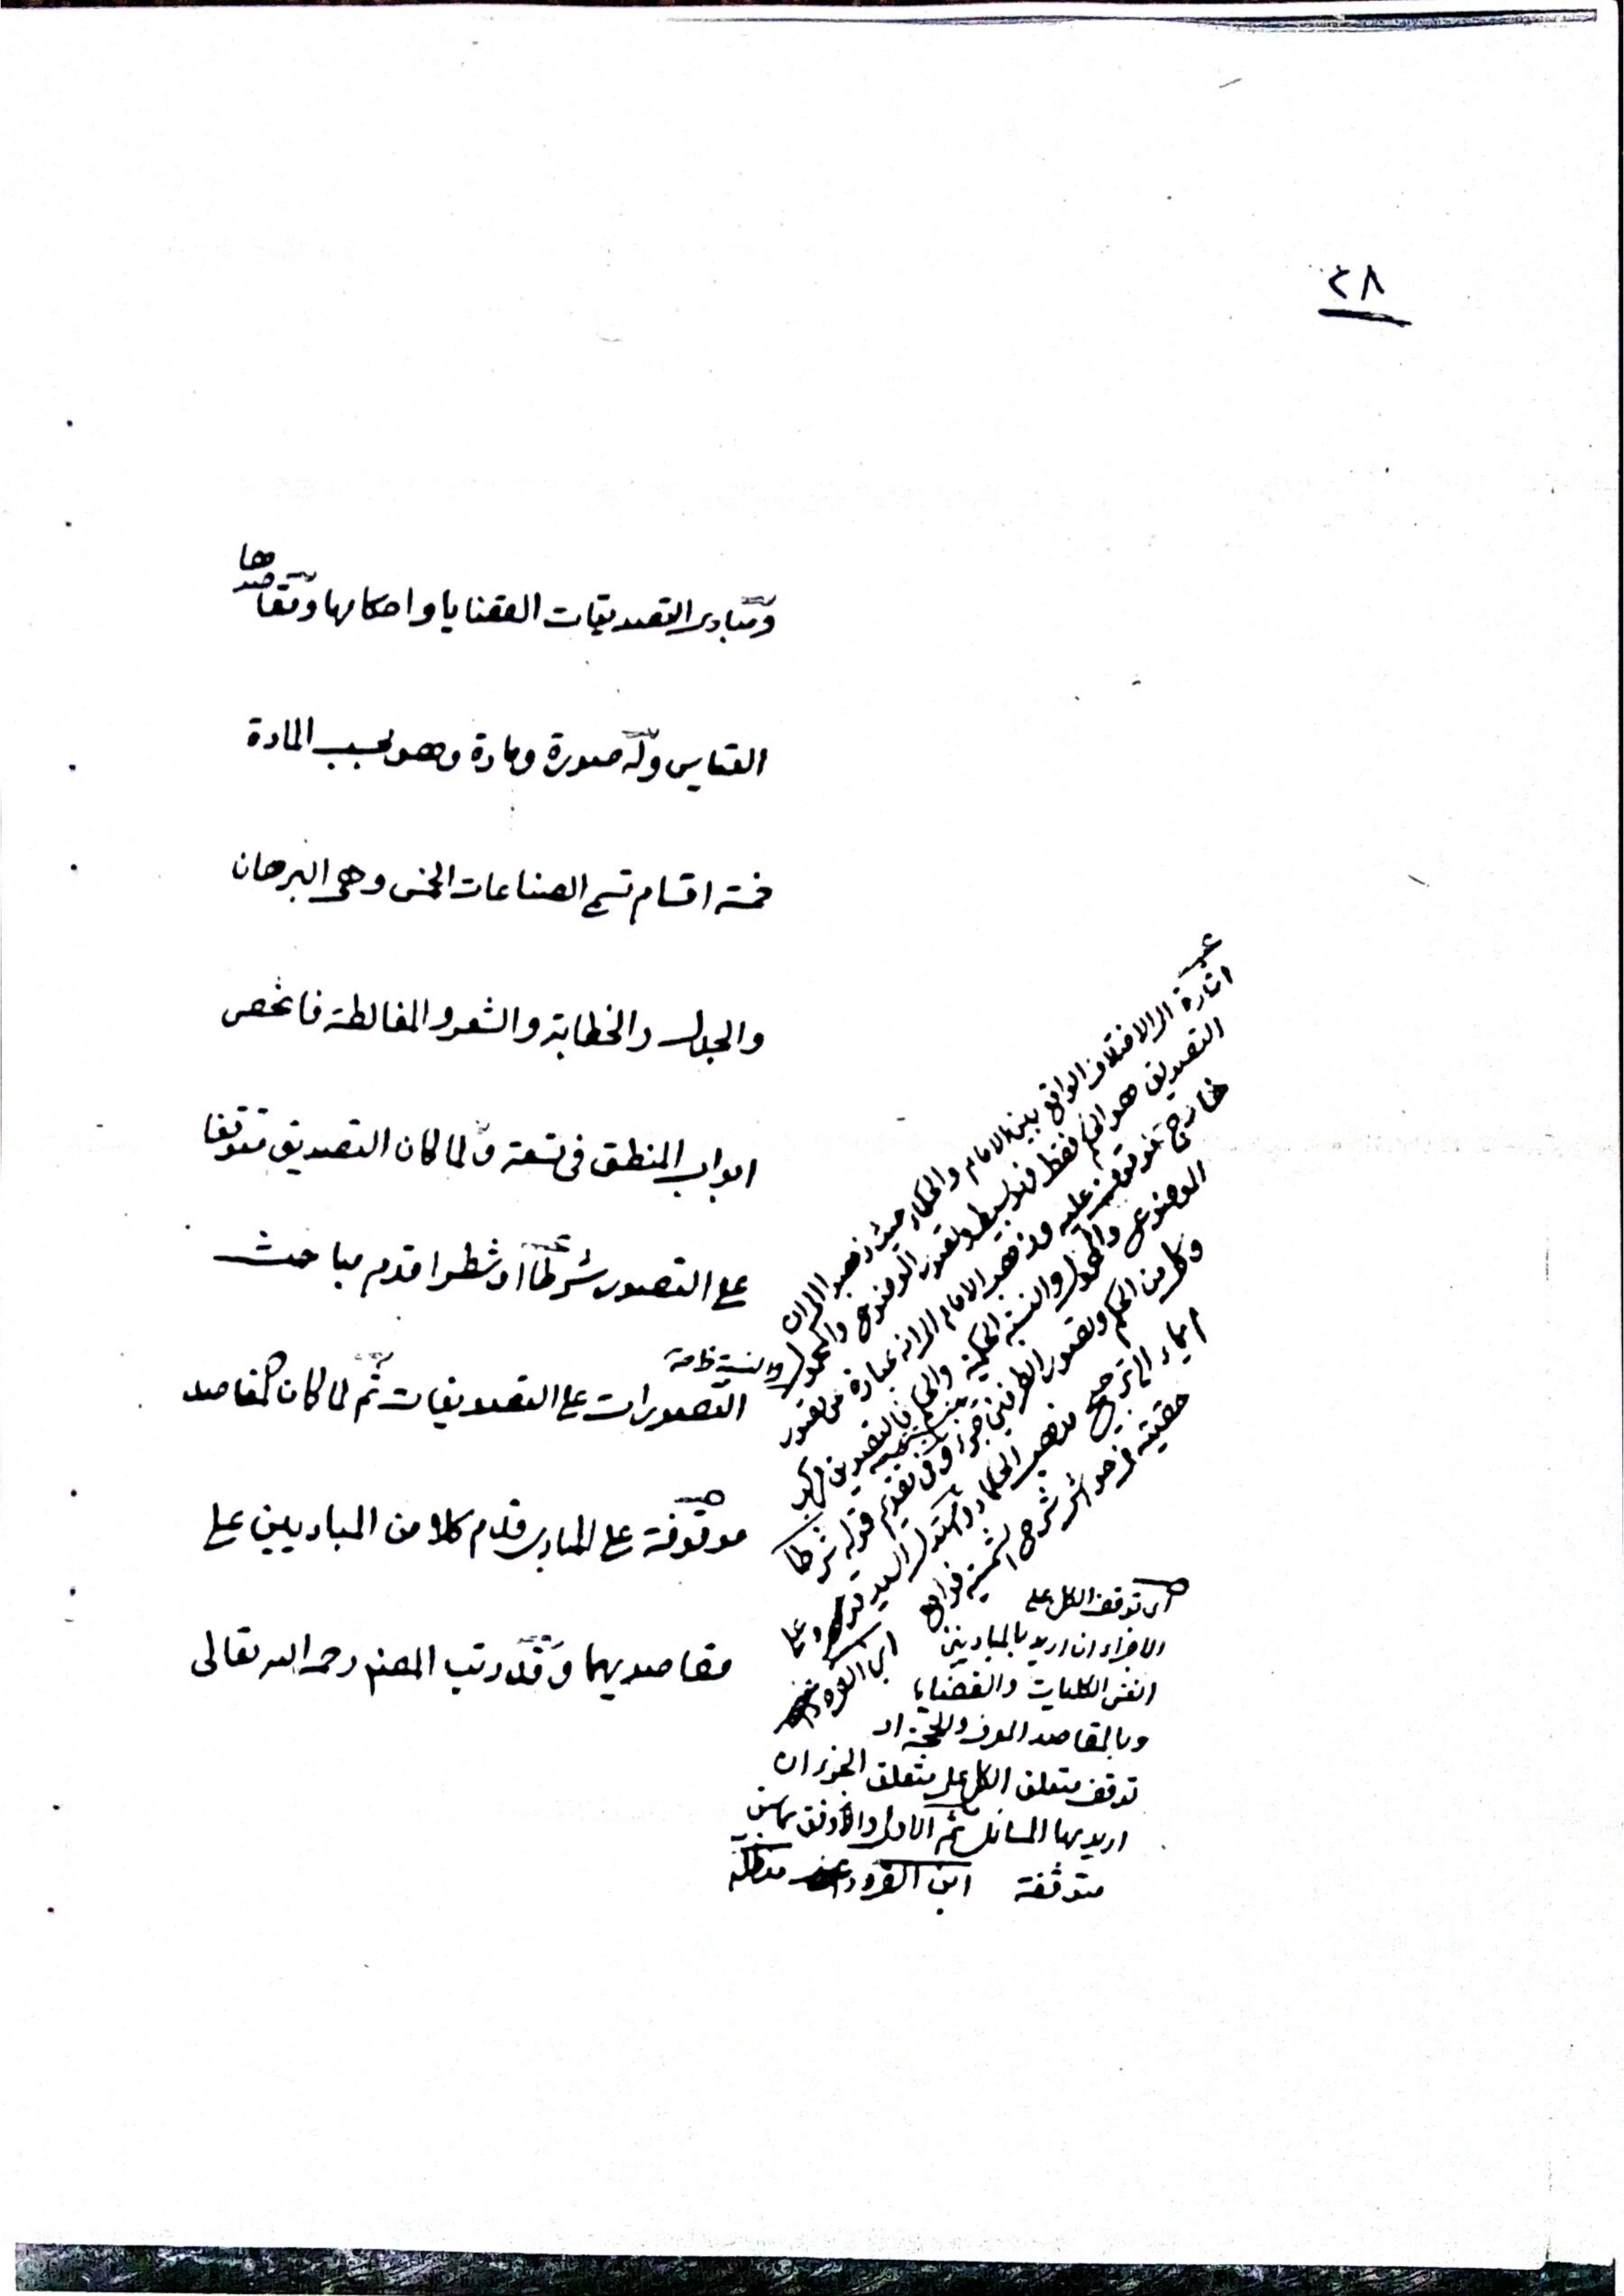 ٢٨
ومبادى التصديقات القضايا واحكامها ومقاصدها
القياس وله صورة ومادة وهو بحسب المادة
خمسة اقسام تسمى الصناعات الخمس وهى البرهان
والجدل والخطابة والشعر والمغالطة فانحصر
ابواب المنطق فى تسعة ولما كان التصديق متوقفا
على التصور شرطا او شطرا قدم مباحث
التصورات على التصديقات ثم لما كان المقاصد
موقوفة على المبادى قدم كلا من المباديين على
مقاصديهما وقد رتب المصنف رحمه الله تعالى
اشارة الى الاختلاف الواقع بين الامام والحكماء حيث ذهبوا الى ان
التصديق هو الحكم فقط فهو بسيط وتصور الموضوع والمحمول والنسبة
خارج يتوقف عليه وذهب الامام الى انه عبارة عن تصور
الموضوع والمحمول والنسبة الحكمية والحكم فالتصديق مركب
وكل من الحكم وتصور الطرفين جزء وفى تقديم قوله شرطا
ايماء الى ترجيح مذهب الحكماء واستدل السيد على
حقيقته فى حواشى شرح الشمسية ابن القره داغى
اى توقف الكل على
الاجزاء ان اريد بالمباديين
انفس الكليات والقضايا
وبالمقاصد المعرف والحجة او
توقف متعلق الكل على متعلق الجزء ان
اريد بها المسائل ثم الاول والاوفق
متوقفة ابن القره داغى مد ظله